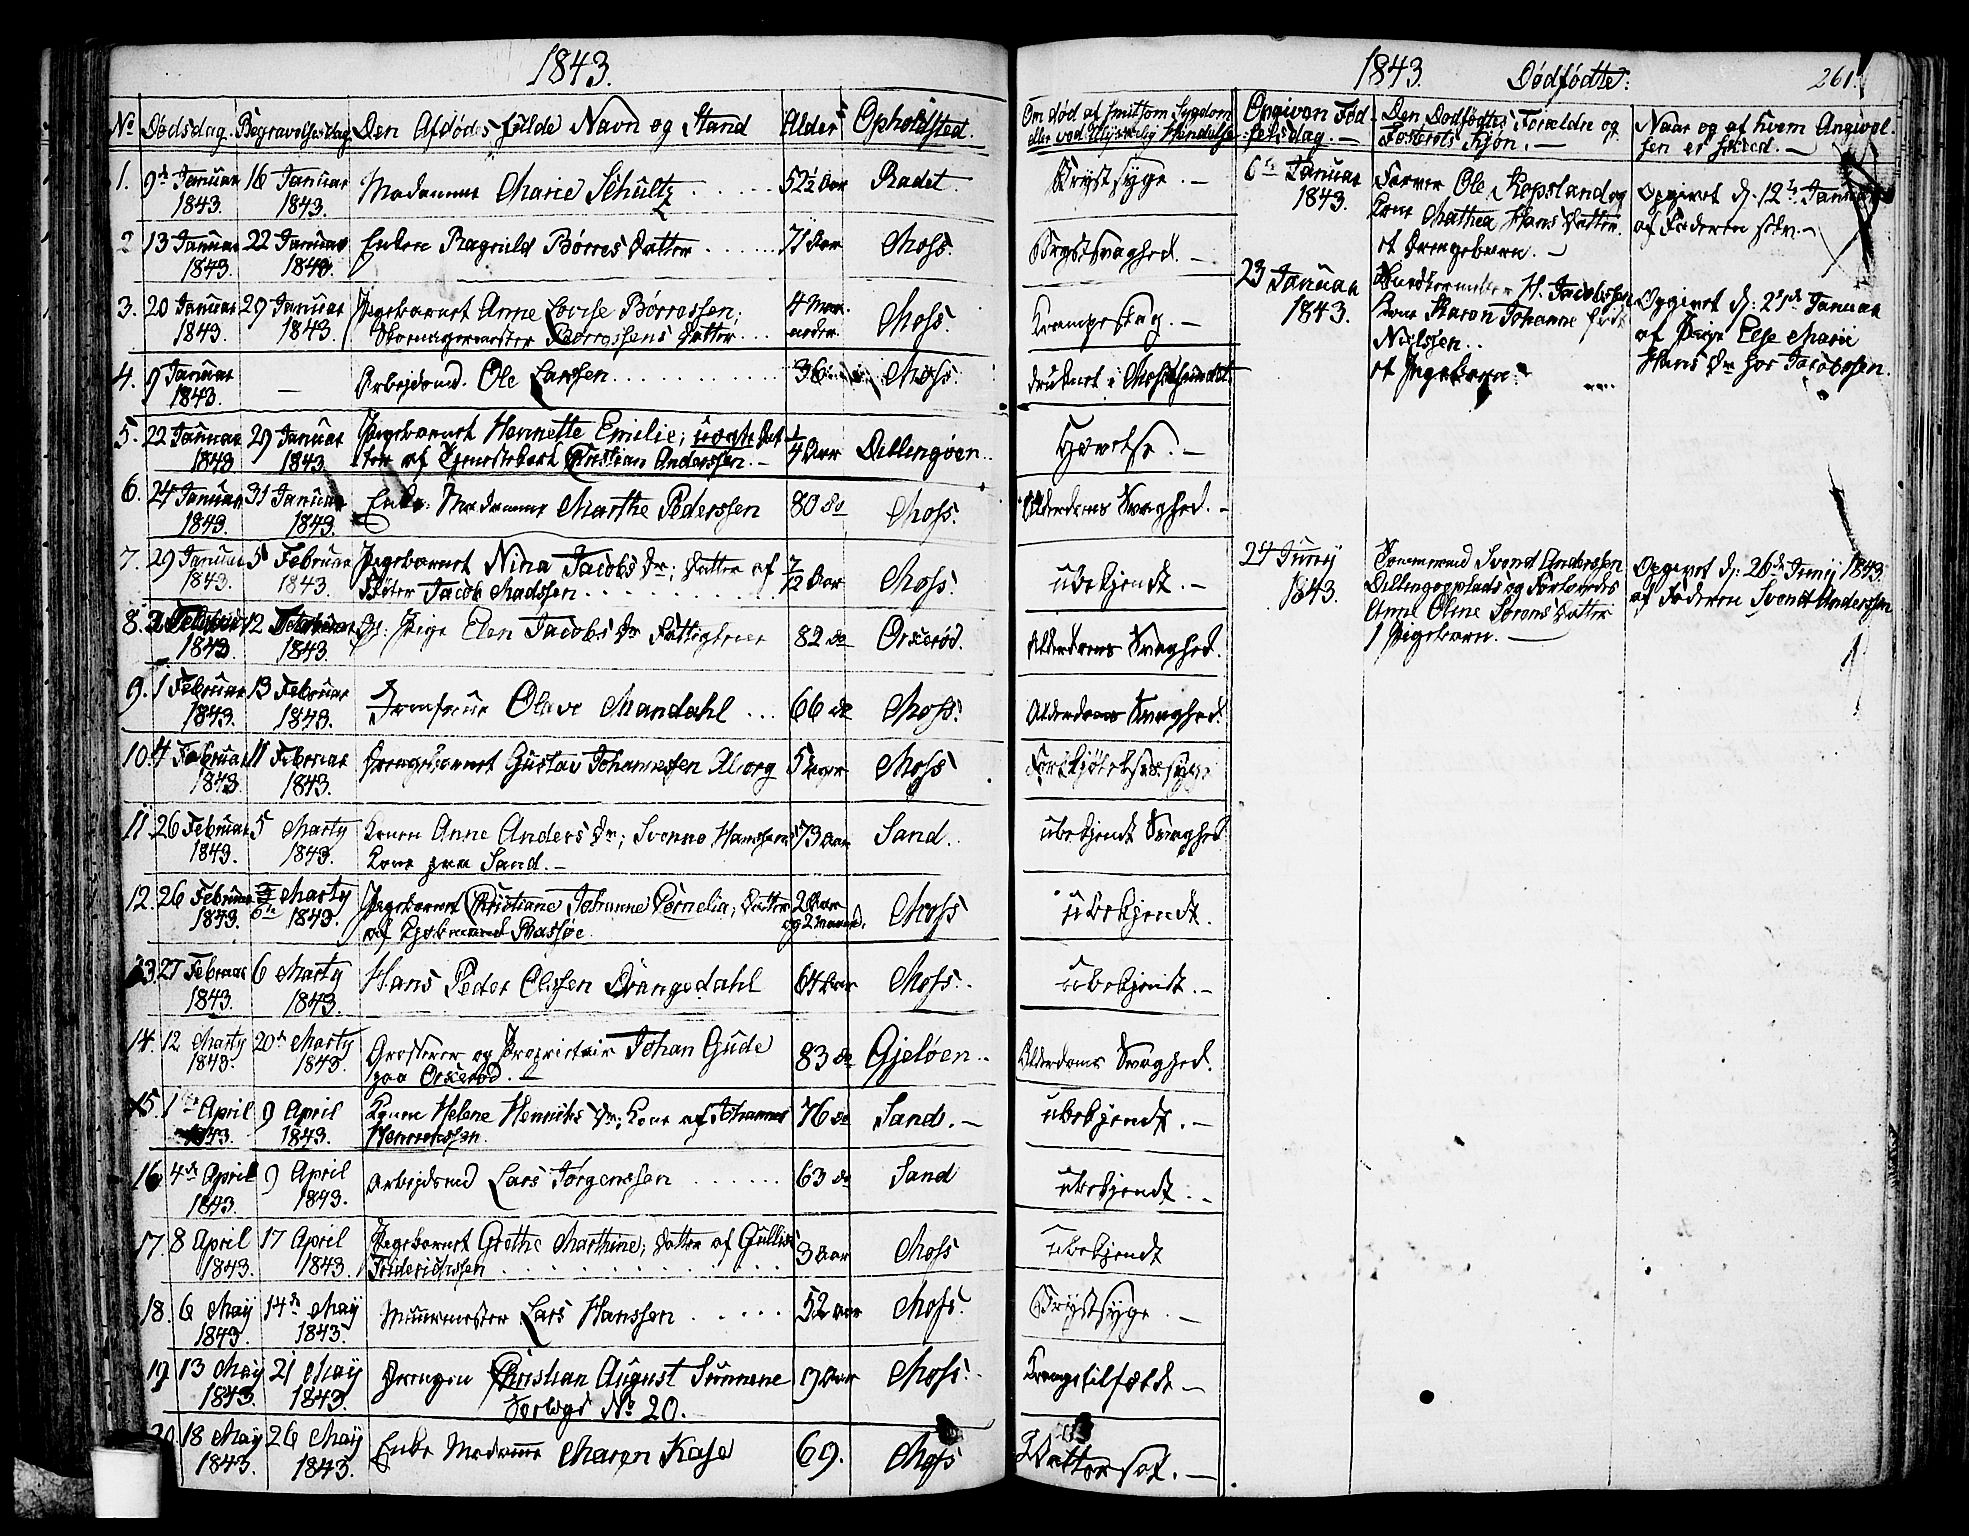 1843.
No Dødsdag. Begravelsesdag. Den Afdødes fulde Navn og Stand Alder Opholdsted.
1. 9de Januar 1843. 16 Januar 1843. Madamme Marie Schultz 52½ Aar Radet.
2 13 Januar 1843. 22 Januar 1843. Enken Ragnild Børres Datter 71 Aar Moss.
3. 20 Januar 1843. 29 Januar 1843. Pigebarnet Anne Lovise Børressen;
Skomagermester Børressens Datter 4 Maaneder Moss.
4. 9 Januar 1843. — Arbejdsmd. Ole Larssen 36 Moss.
5. 22 Januar 1843 29 Januar 1843. Pigebarnet Hennette Emilie; uægte Dat-
ter af Tjenestekarl Christian Anderssen. ¼ Aar Dillingøen.
6. 24 Januar 1843. 31 Januar 1843. Enke Madamme Marthe Pederssen 80 do Moss.
7. 29 Januar 1843. 5 Februar 1843. Pigebarnet Nina Jacobs Dr; Datter af
Jacob Madssen 7/12 Aar Moss.
8. Februar 1843 12 Februar 1843. Pige Elen Jacobs Dr Fattiglem 82 do Orkerød.
9. 1 Februar 1843. 13 Februar 1843. Jomfrue Olave Mandahl 66 do Moss.
10. 4 Februar 1843 11 Februar 1843. Drengebarnet Gustav Johannessen Aborg 5 Moss
11. 26 Februar 1843. 5 Marty 1843. Konen Anne Anders Dr; Svenno Hanssens
Kone paa Sand. 73 Aar Sand.
12. 26 Februar 1843. 6te Marty 1843. Pigebarnet Christiane Johanne Cornelia; Datter
af Kjøbmand Bassøe 2 Aar og 2 Maaned. Moss
13. 27 Februar 1843. 6 Marty 1843. Hans Peder Olssen Orangedahl 64 Aar Moss.
14. 12 Marty 1843. 20de Marty 1843. Grosserer og Proprietair Johan Gude
paa Orkerød. 83 do Gjeløen.
15. 1ste April 1843. 9 April 1843. Konen Helene Henriks Dr; Kone af Johannes
76 do Sand.
16 4de April 1843. 9 April 1843. Arbejdsmd Lars Jørgenssen 63 do Sand
17. 8 April 1843. 17 April 1843. Pigebarnet Grethe Marthine; Datter af Gullik
Friderichsen 3 Aar Moss
18. 6 May 1843. 14de May 1843. Muurmester Lars Hanssen 52 Aar Moss.
19. 13 May 1843. 21 May 1843. Drengen Christian August Sunnene
9 Aar Moss.
No 20.
20. 18 May 1843. 26 May 1843. Enke Madamme Maren Kase 69. Moss
1843. Dødfødte. 261.
Om død af smitsom Sygdom
eller ved Ulykkelig Hændelse
Opgiven Fød-
selsdag.
Den Dødfødtes Forældre og
Fosterets Kjøn.
Naar og af hvem Angivel-
sen er skeed.
Brystsyge.
Brystsvaghed.
Krampeslag.
druknet i Mossesundet
Hævelse.
Alderdoms Svaghed.
ubekjendt.
Alderdoms Svaghed.
Alderdoms Svaghed.
Forkjølelsessyge
ubekjendt Svaghed
ubekjendt.
ubekjendt.
Alderdoms Svaghed.
ubekjendt.
ubekjendt.
ubekjendt
Brystsyge.
Vattersot.
6te Januar 1843.
Farver Ole Kopsland og
Kone Mathea Hans Datter
et Drengebarn.
Opgivet d: 12te Januar
af Faderen selv.
23 Januar 1843.
H. Jacobssen
Kone Karen Johanne
Nielssen.
et Pigebarn
Opgivet d: Januar
af Pige Else Marie
Hans Dr hos Jacobssen.
24 Juny 1843.
Tømmermd Svend Anderssen
Dillingoplads og Forlovede
Anne Oline Sørens Datter
1 Pigebarn.
Opgivet d: 26de Juny 1843.
af Faderen Svend Anderssen